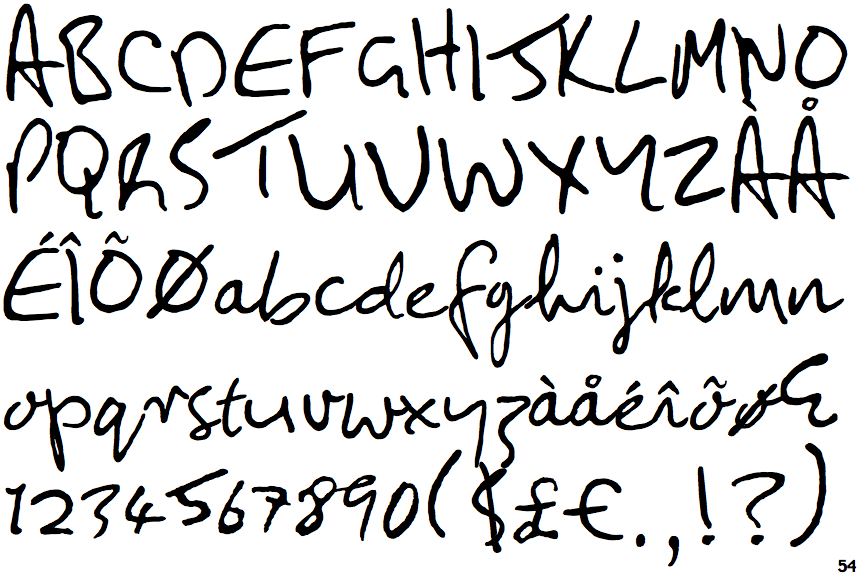 ABCDEFGHIJKLMNO
PQRSTUVWXYZÀÅ
ÉÎÕØabcdefghijklmn
opqrstuvwxyzàåéîõø&
1234567890($£€.,!?)
54